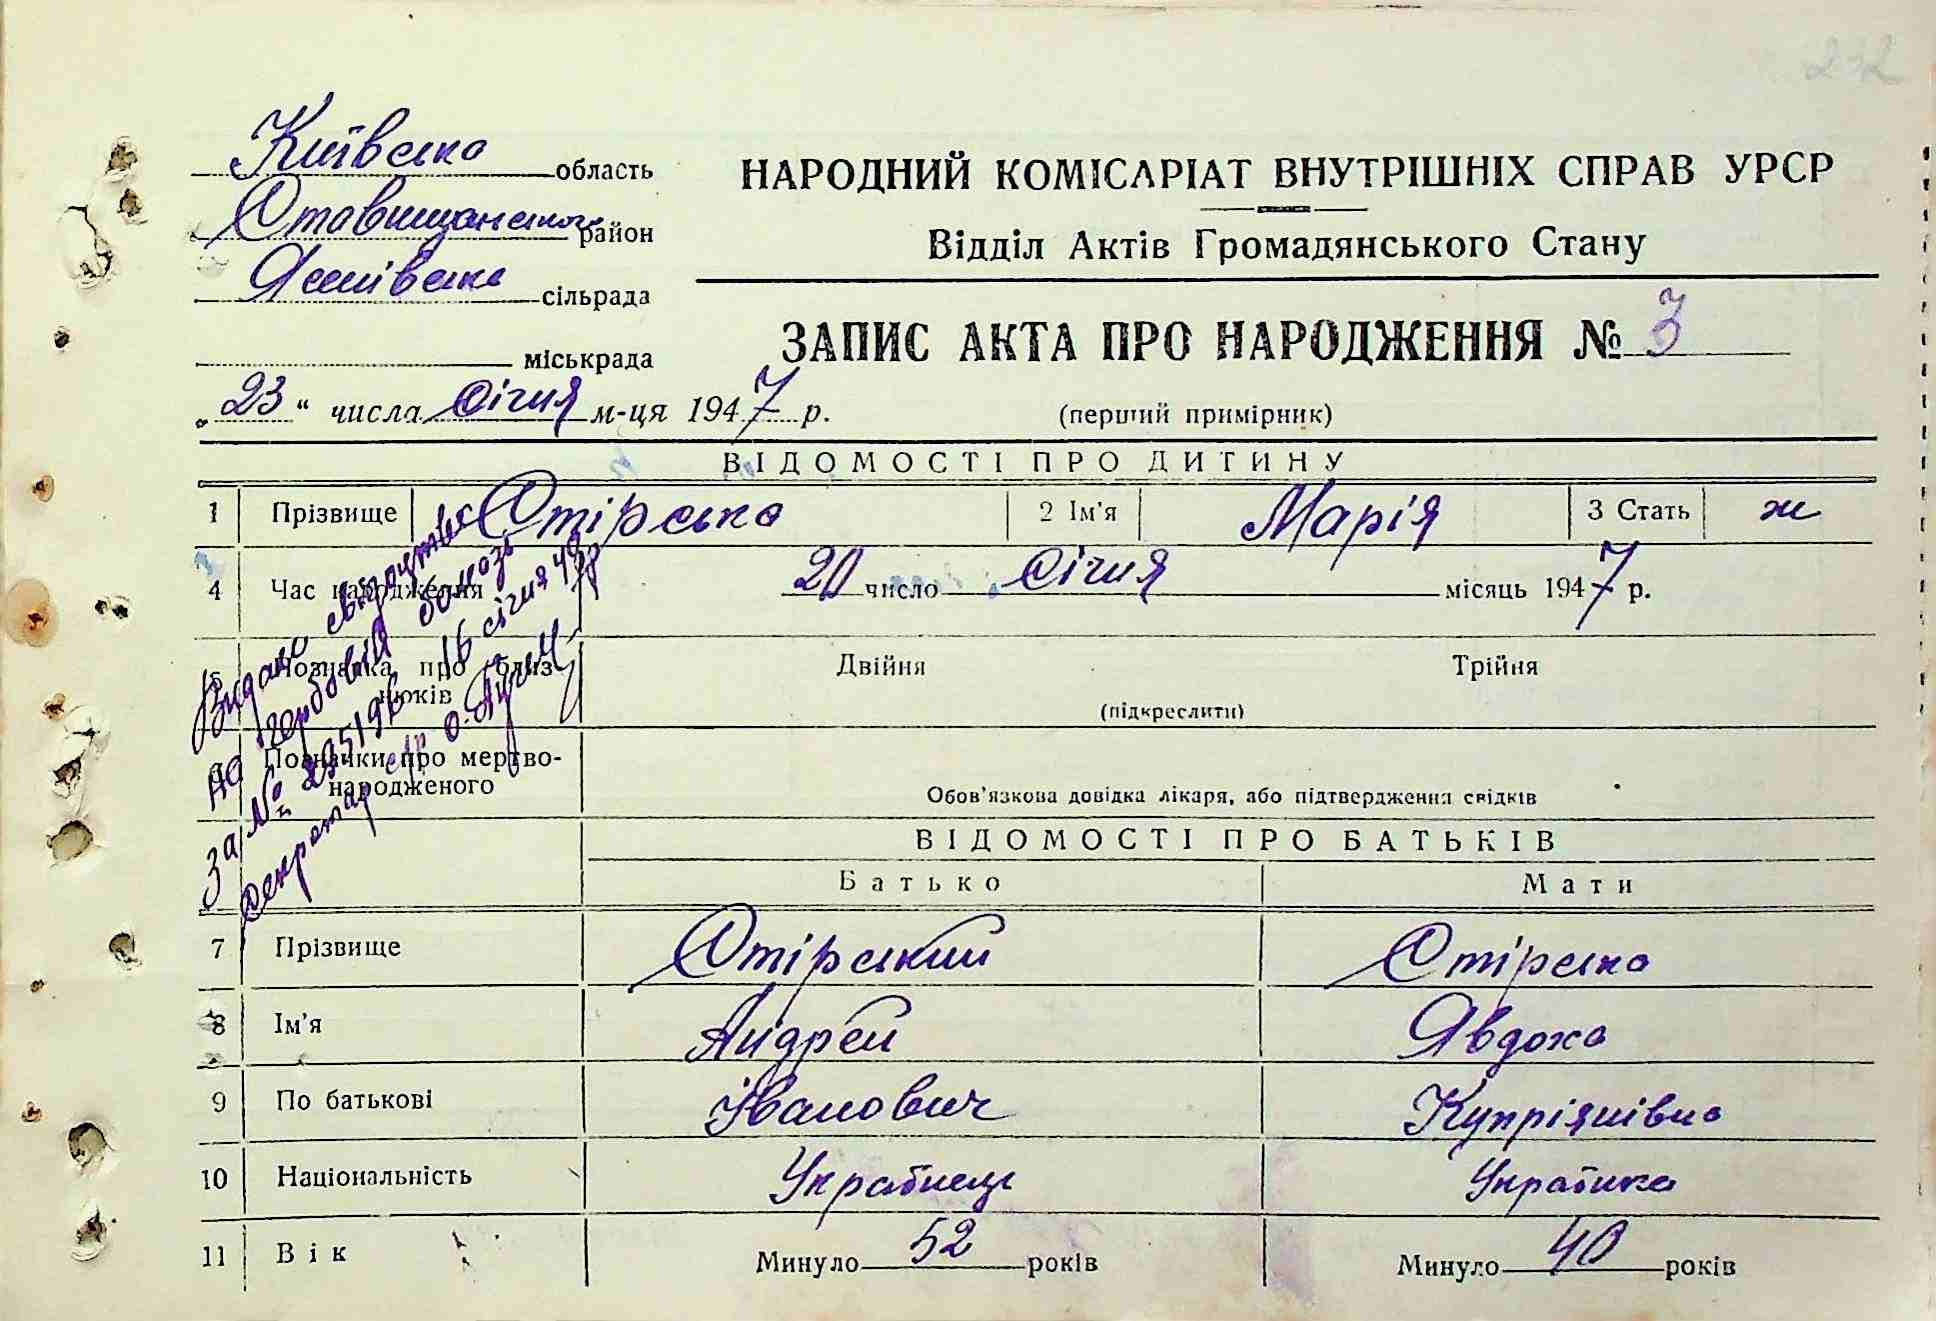 232
Київська область
НАРОДНИЙ КОМІСАРІАТ ВНУТРІШНІХ СПРАВ УРСР
Ставищанського район
Відділ Актів Громадянського Стану
сільрада
ЗАПИС АКТА ПРО НАРОДЖЕННЯ № 3
міськрада
„23“ числа Січня м-ця 1947 р.
(перший примірник)
ВІДОМОСТІ ПРО ДИТИНУ
1 Прізвище Отірська 2 Ім'я Марія 3 Стать ж
4 Час народження 20 число Січня місяць 1947 р.
5 Позначка про близнюків Двійня Трійня
(підкреслити)
Позначки про мертвонародженого
Обов'язкова довідка лікаря, або підтвердження свідків
Видано свідоцтво
на гербовій
за № 16 січня 49р
Секретар с/р
ВІДОМОСТІ ПРО БАТЬКІВ
Батько Мати
7 Прізвище Отірський Отірська
8 Ім'я Андрей Явдоха
9 По батькові Іванович Купріянівна
10 Національність Українець Українка
11 Вік Минуло 52 років Минуло 40 років